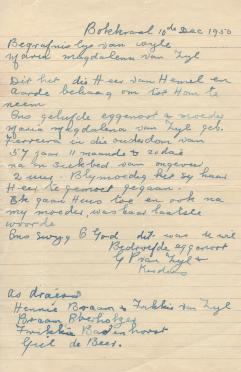 Bokkraal 10de Dec 1950
Begrafnis lys van wyle
Maria Magdalena van Zyl
Dit het die Heer van Hemel en
Aarde behaag om tot Hom te
neem
Ons geliefde eggenoot & moeder
Maria Magdalena van Zyl geb.
Ferreira in die ouderdom van
57 jaar 11 maande & 20 dae
na 'n siekbed van ongeveer
2 uur. Blymoedig het sy haar
Heer te gemoet gegaan.
Ek gaan Huis toe en ook na
my moeder was haar laaste
woorde
Ons swyg O God dit was U wil
Bedroefde eggenoot
G P van Zyl &
Kinders
As draers
Hennie Braam & Frikkie van Zyl
Braam Oberholzer
Frikkie Badenhorst
Giel de Beer.